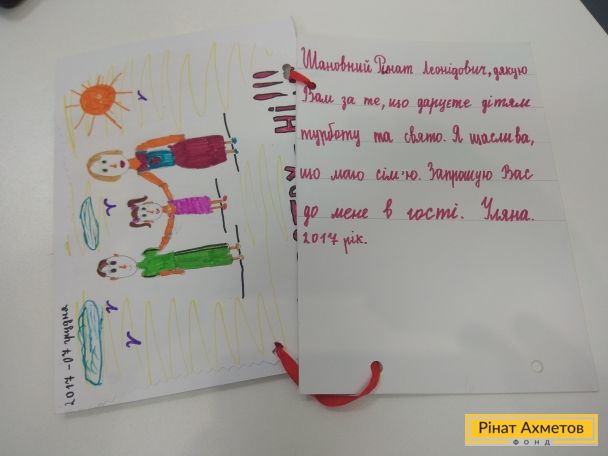 Шановний Рінат Леонідович, дякую
Вам за те, що даруєте дітям
турботу та свято. Я щаслива,
що маю сім'ю. Запрошую Вас
до мене в гості. Уляна.
2017 рік.
2017-07 грудня
НІ!!!
Рінат Ахметов
ФОНД